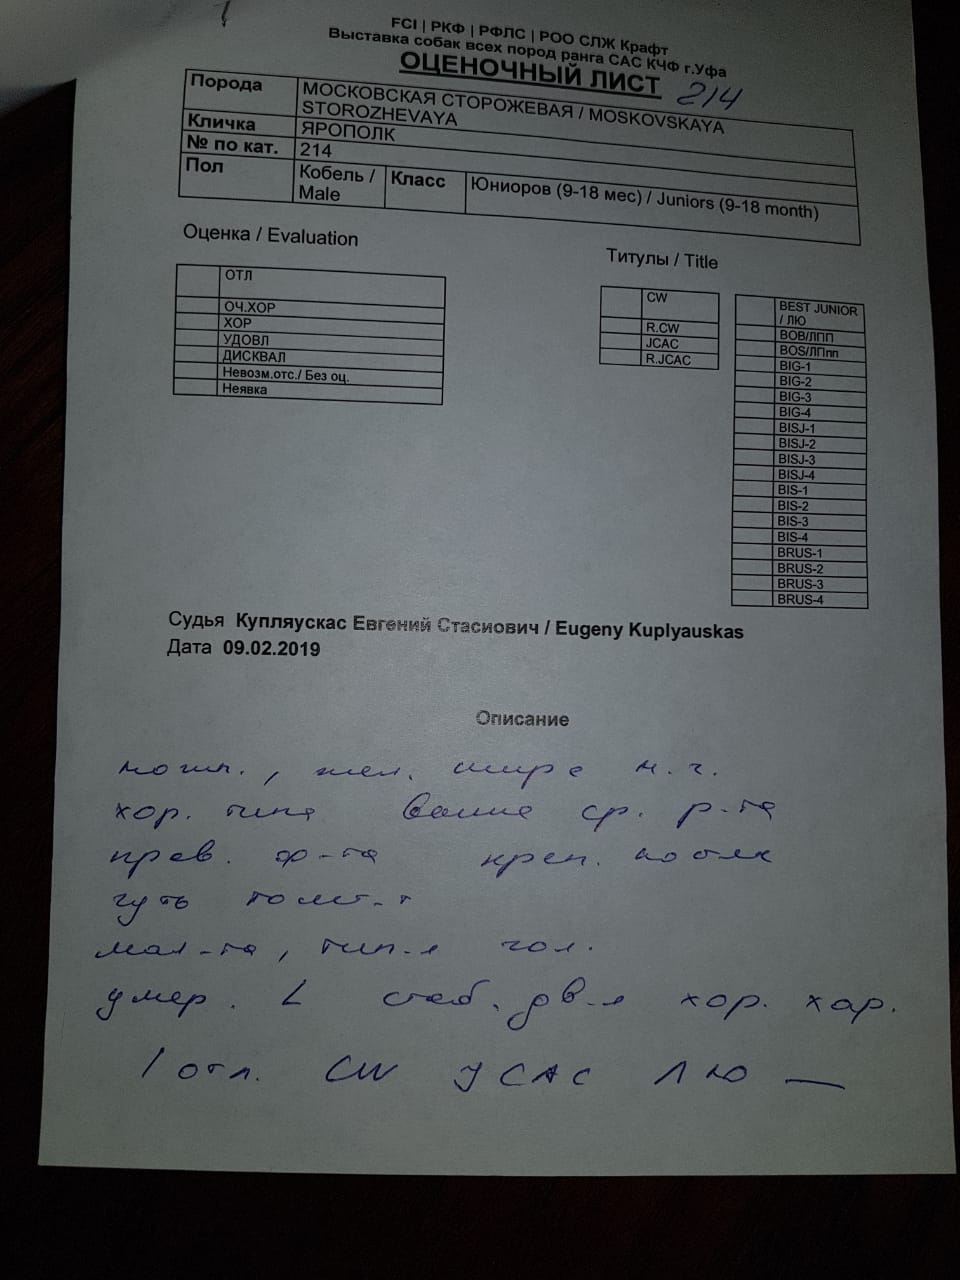 FCI | РКФ | РФЛС | РОО СЛЖ Крафт
Выставка собак всех пород ранга САС КЧФ г.Уфа
ОЦЕНОЧНЫЙ ЛИСТ 214
Порода МОСКОВСКАЯ СТОРОЖЕВАЯ / MOSKOVSKAYA
STOROZHEVAYA
Кличка ЯРОПОЛК
№ по кат. 214
Пол Кобель / Male Класс Юниоров (9-18 мес) / Juniors (9-18 month)
Оценка / Evaluation
ОТЛ
ОЧ.ХОР
ХОР
УДОВЛ
ДИСКВАЛ
Невозм.отс./ Без оц.
Неявка
Титулы / Title
CW
R.CW
JCAC
R.JCAC
BEST JUNIOR
/ ЛЮ
BOB/ЛПП
BOS/ЛПпп
BIG-1
BIG-2
BIG-3
BIG-4
BISJ-1
BISJ-2
BISJ-3
BISJ-4
BIS-1
BIS-2
BIS-3
BIS-4
BRUS-1
BRUS-2
BRUS-3
BRUS-4
Судья Купляускас Евгений Стасиович / Eugeny Kuplyauskas
Дата 09.02.2019
Описание
жел.
хор. типа выше ср. р-та
прев. ф-та креп.
чуть
гол.
умер. L стаб. дв-я хор. хар.
1 отл. CW JCAC ЛЮ —